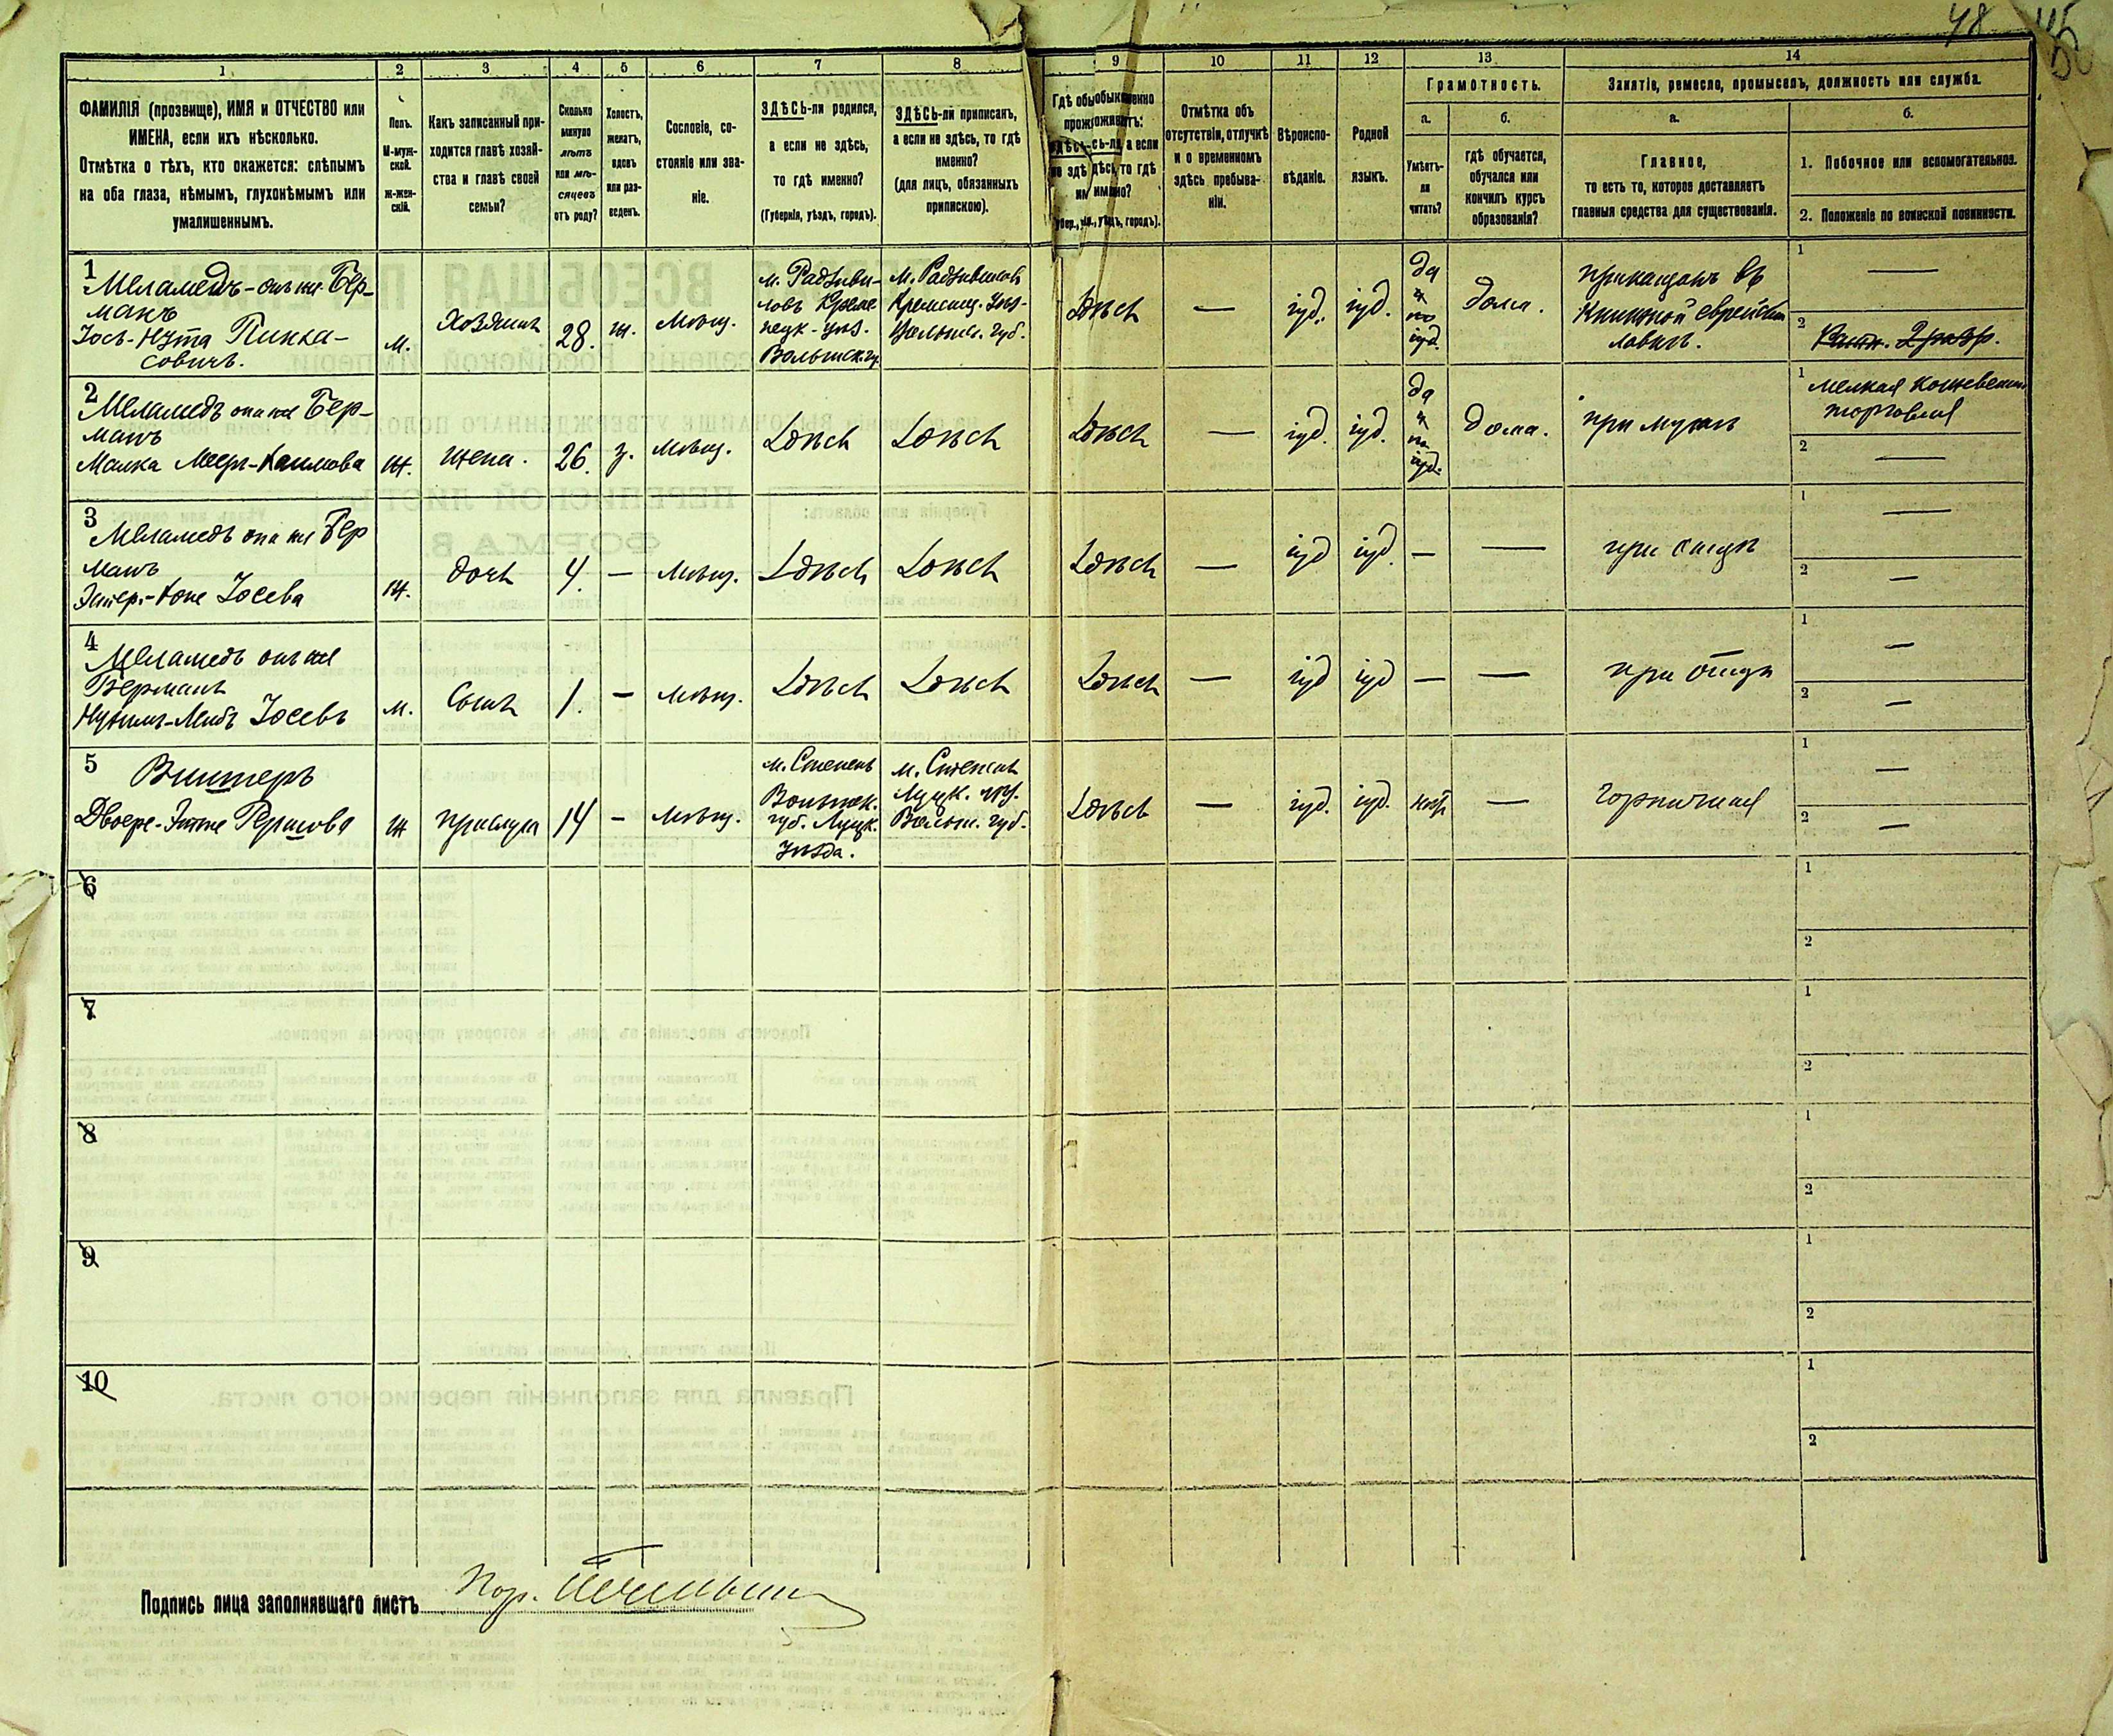 48
1
2
3
4
5
6
7
8
9
10
11
12
13
14
ФАМИЛІЯ (прозвище), ИМЯ и ОТЧЕСТВО или
ИМЕНА, если ихъ нѣсколько.
Отмѣтка о тѣхъ, кто окажется: слѣпымъ
на оба глаза, нѣмымъ, глухонѣмымъ или
умалишеннымъ.
Полъ.
М-муж-
ской.
ж-жен-
скій.
Какъ записанный при-
ходится главѣ хозяй-
ства и главѣ своей
семьи?
Сколько
минуло
лѣтъ
или мѣ-
сяцевъ
отъ роду?
Холостъ,
женатъ,
вдовъ
или раз-
веденъ.
Сословіе, со-
стояніе или зва-
ніе.
ЗДѢСЬ-ли родился,
а если не здѣсь,
то гдѣ именно?
(Губернія, уѣздъ, городъ).
ЗДѢСЬ-ли приписанъ,
а если не здѣсь, то гдѣ
именно?
(для лицъ, обязанныхъ
припискою).
Гдѣ обыкновенно
проживаетъ:
здѣсь-ли, а если
не здѣсь, то гдѣ
именно?
Отмѣтка объ
отсутствіи, отлучкѣ
и о временномъ
здѣсь пребыва-
ніи.
Вѣроиспо-
вѣданіе.
Родной
языкъ.
Грамотность.
а.
Умѣетъ-
ли
читать?
б.
гдѣ обучается,
обучался или
кончилъ курсъ
образованія?
Занятіе, ремесло, промыселъ, должность или служба.
а.
Главное,
то есть то, которое доставляетъ
главныя средства для существованія.
б.
1. Побочное или вспомогательное.
2. Положеніе по воинской повинности.
1
Меламедъ - онъ же Бер-
манъ
Іось-Нута Пинка-
совичъ.
м.
Хозяинъ
28.
ж.
Мѣщ.
м. Радзиви-
ловъ Креме-
нецк. уѣз.
Волынск. гу.
м. Радзивиловъ
Кременец. уѣз-
Волынс. губ.
Здѣсь
—
іуд.
іуд.
да
и
по
іуд.
дома.
прикащикъ въ
книжной еврейской
лавкѣ.
1 —
2 Ратн. 2 разр.
2
Меламедъ она же Бер-
манъ
Малка Меер-Хаимова
ж.
жена.
26.
з.
мѣщ.
Здѣсь
Здѣсь
Здѣсь
—
іуд.
іуд.
да
и
по
іуд.
дома.
при мужѣ
1 мелкая
торговля
2 —
3
Меламедъ она же Бер
манъ
Іосева
ж.
дочь
4.
—
Мѣщ.
Здѣсь
Здѣсь
Здѣсь
—
іуд
іуд.
—
—
при отцѣ
1 —
2 —
4
Меламедъ онъ же
Берманъ
Іосевъ
м.
Сынъ
1.
—
мѣщ.
Здѣсь
Здѣсь
Здѣсь
—
іуд
іуд
—
—
при отцѣ
1 —
2 —
5
Винтеръ
Двойре-Этте Гершова
ж
прислуга
14
—
мѣщ.
м. Степень
Волынск.
губ. Луцк.
уѣзда.
м. Степень
Луцк. уѣз.
Волын. губ.
Здѣсь
—
іуд.
іуд.
нѣтъ
—
горничная
1 —
2 —
6
1
2
7
1
2
8
1
2
9
1
2
10
1
2
Подпись лица заполнявшаго листъ